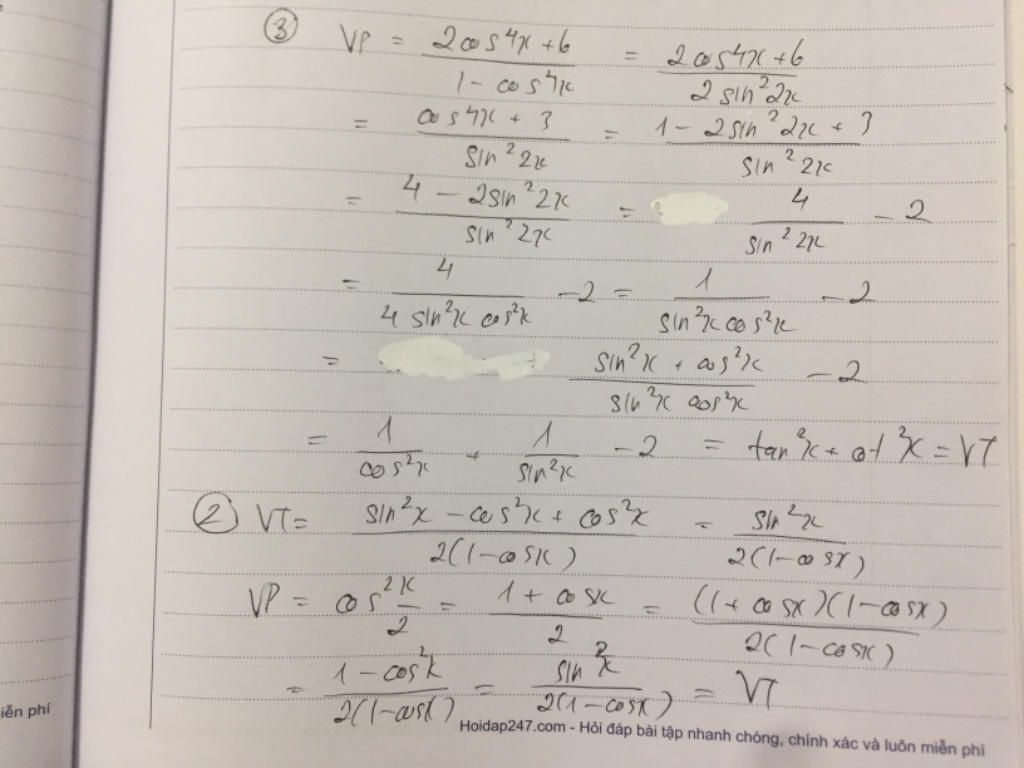 ③ VP = (2cos4x + 6)/(1 - cos4x) = (2cos4x + 6)/(2sin²2x)
= (cos4x + 3)/(sin²2x) = (1 - 2sin²2x + 3)/(sin²2x)
= (4 - 2sin²2x)/(sin²2x) = 4/(sin²2x) - 2
= 4/(4sin²x cos²x) - 2 = 1/(sin²x cos²x) - 2
= (sin²x + cos²x)/(sin²x cos²x) - 2
= 1/(cos²x) + 1/(sin²x) - 2 = tan²x + cot²x = VT
② VT = (sin²x - cos²x + cos²x)/(2(1 - cosx)) = sin²x/(2(1 - cosx))
VP = cos² x/2 = (1 + cosx)/2 = ((1 + cosx)(1 - cosx))/(2(1 - cosx))
= (1 - cos²x)/(2(1 - cosx)) = sin²x/(2(1 - cosx)) = VT
iễn phí
Hoidap247.com - Hỏi đáp bài tập nhanh chóng, chính xác và luôn miễn phí